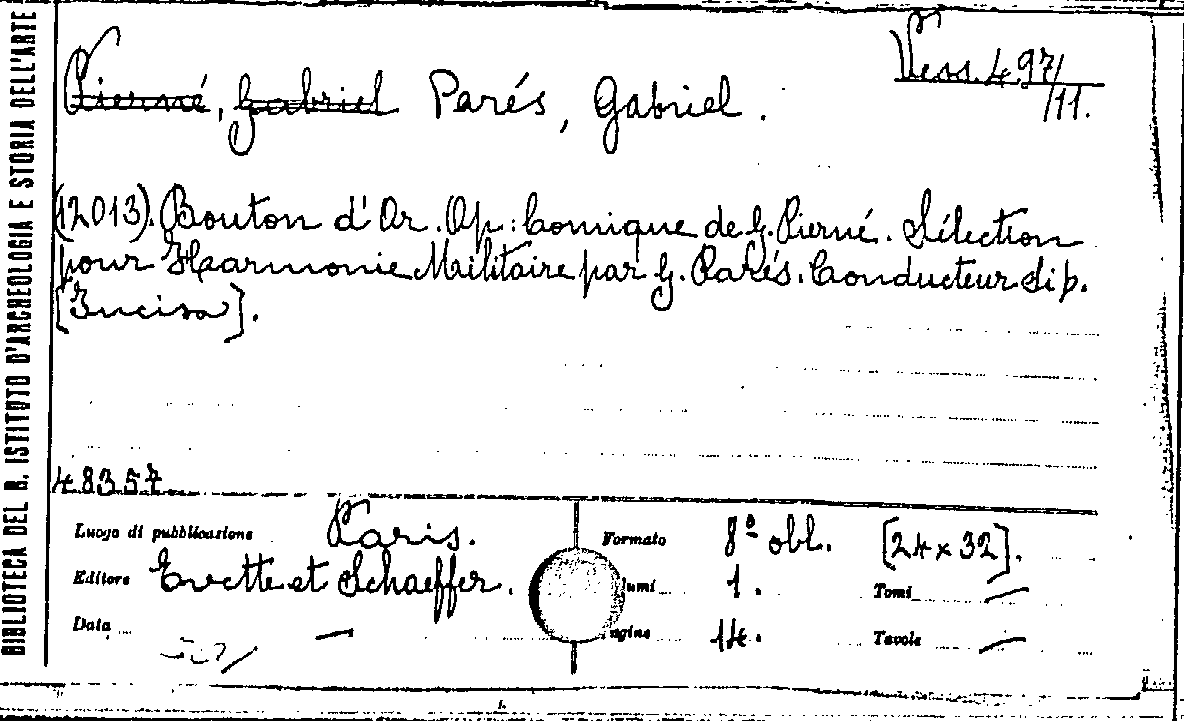 BIBLIOTECA DEL R. ISTITUTO D'ARCHEOLOGIA E STORIA DELL'ARTE
Vess. 497/
/11.
Pierné, Gabriel Parés, Gabriel.
(12013). Bouton d'Or. Op: Comique de G. Pierné. Sélection
pour Harmonie Militaire par G. Parés. Conducteur Si b.
[Incisa].
48357
Luogo di pubblicazione Paris.
Editore Evette et Schaeffer.
Data —
Formato 8º obl. [24 x 32].
lumi 1. Tomi —
agine 14. Tavole —